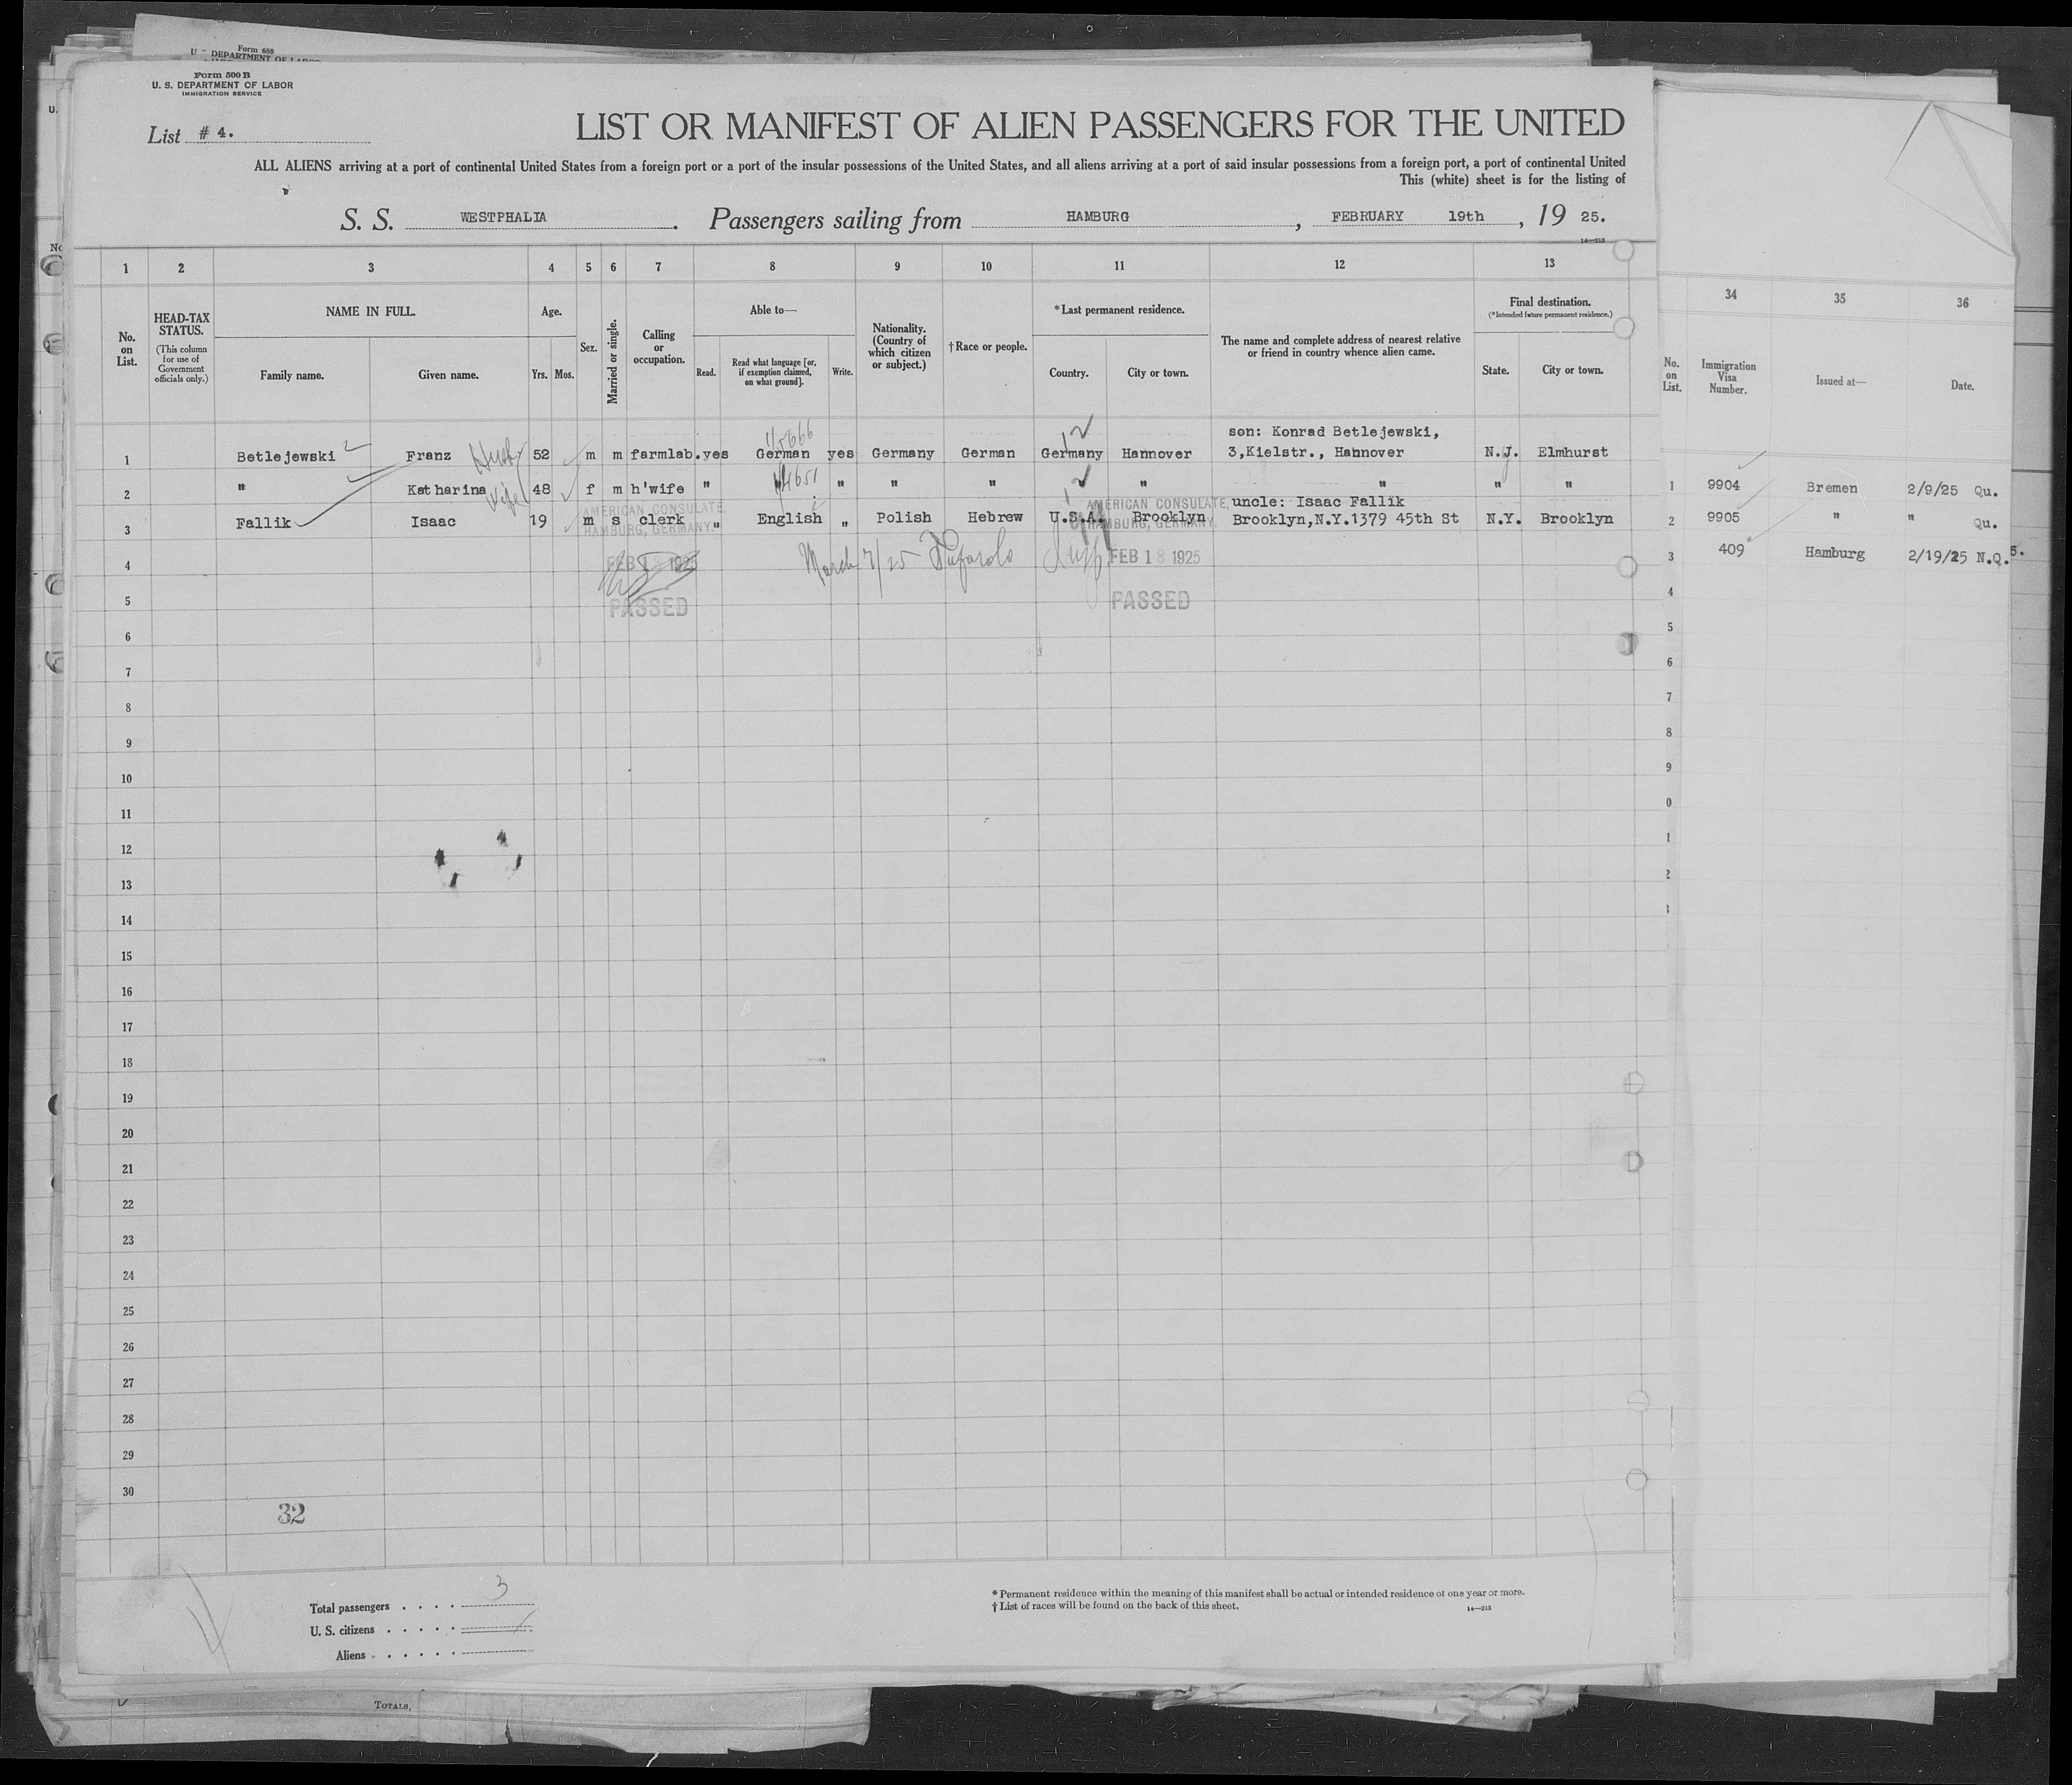 U. S. DEPARTMENT OF LABOR
Form 689
Form 500 B
U. S. DEPARTMENT OF LABOR
IMMIGRATION SERVICE
List # 4.
LIST OR MANIFEST OF ALIEN PASSENGERS FOR THE UNITED
ALL ALIENS arriving at a port of continental United States from a foreign port or a port of the insular possessions of the United States, and all aliens arriving at a port of said insular possessions from a foreign port, a port of continental United
This (white) sheet is for the listing of
S. S. WESTPHALIA. Passengers sailing from HAMBURG, FEBRUARY 19th, 19 25.
14—213
1 2 3 4 5 6 7 8 9 10 11 12 13 34 35 36
No. on List.
HEAD-TAX STATUS.
(This column for use of Government officials only.)
NAME IN FULL.
Family name. Given name.
Age.
Yrs. Mos.
Sex.
Married or single.
Calling or occupation.
Able to—
Read. Read what language [or, if exemption claimed, on what ground]. Write.
Nationality. (Country of which citizen or subject.)
†Race or people.
*Last permanent residence.
Country. City or town.
The name and complete address of nearest relative or friend in country whence alien came.
Final destination.
(*Intended future permanent residence.)
State. City or town.
No. on List. Immigration Visa Number. Issued at— Date.
son: Konrad Betlejewski,
1 Betlejewski Franz Husb 52 m m farmlab. yes German yes Germany German Germany Hannover 3,Kielstr., Hannover N.J. Elmhurst
2 " Katharina wife 48 f m h'wife " " " " " " " " " "
AMERICAN CONSULATE, AMERICAN CONSULATE, uncle: Isaac Fallik
3 Fallik Isaac 19 m s clerk " English " Polish Hebrew U.S.A. Brooklyn Brooklyn,N.Y.1379 45th St N.Y. Brooklyn
HAMBURG, GERMANY. HAMBURG, GERMANY.
1 9904 Bremen 2/9/25 Qu.
2 9905 " " Qu.
3 409 Hamburg 2/19/25 N.Q.
4 FEB 18 1925 March 7/25 FEB 18 1925
5 PASSED PASSED
6
7
8
9
10
11
12
13
14
15
16
17
18
19
20
21
22
23
24
25
26
27
28
29
30
4
5
6
7
8
9
0
1
2
32
Total passengers . . . . 3
U. S. citizens . . . . .
Aliens . . . . . .
* Permanent residence within the meaning of this manifest shall be actual or intended residence of one year or more.
† List of races will be found on the back of this sheet.
14—213
TOTALS,